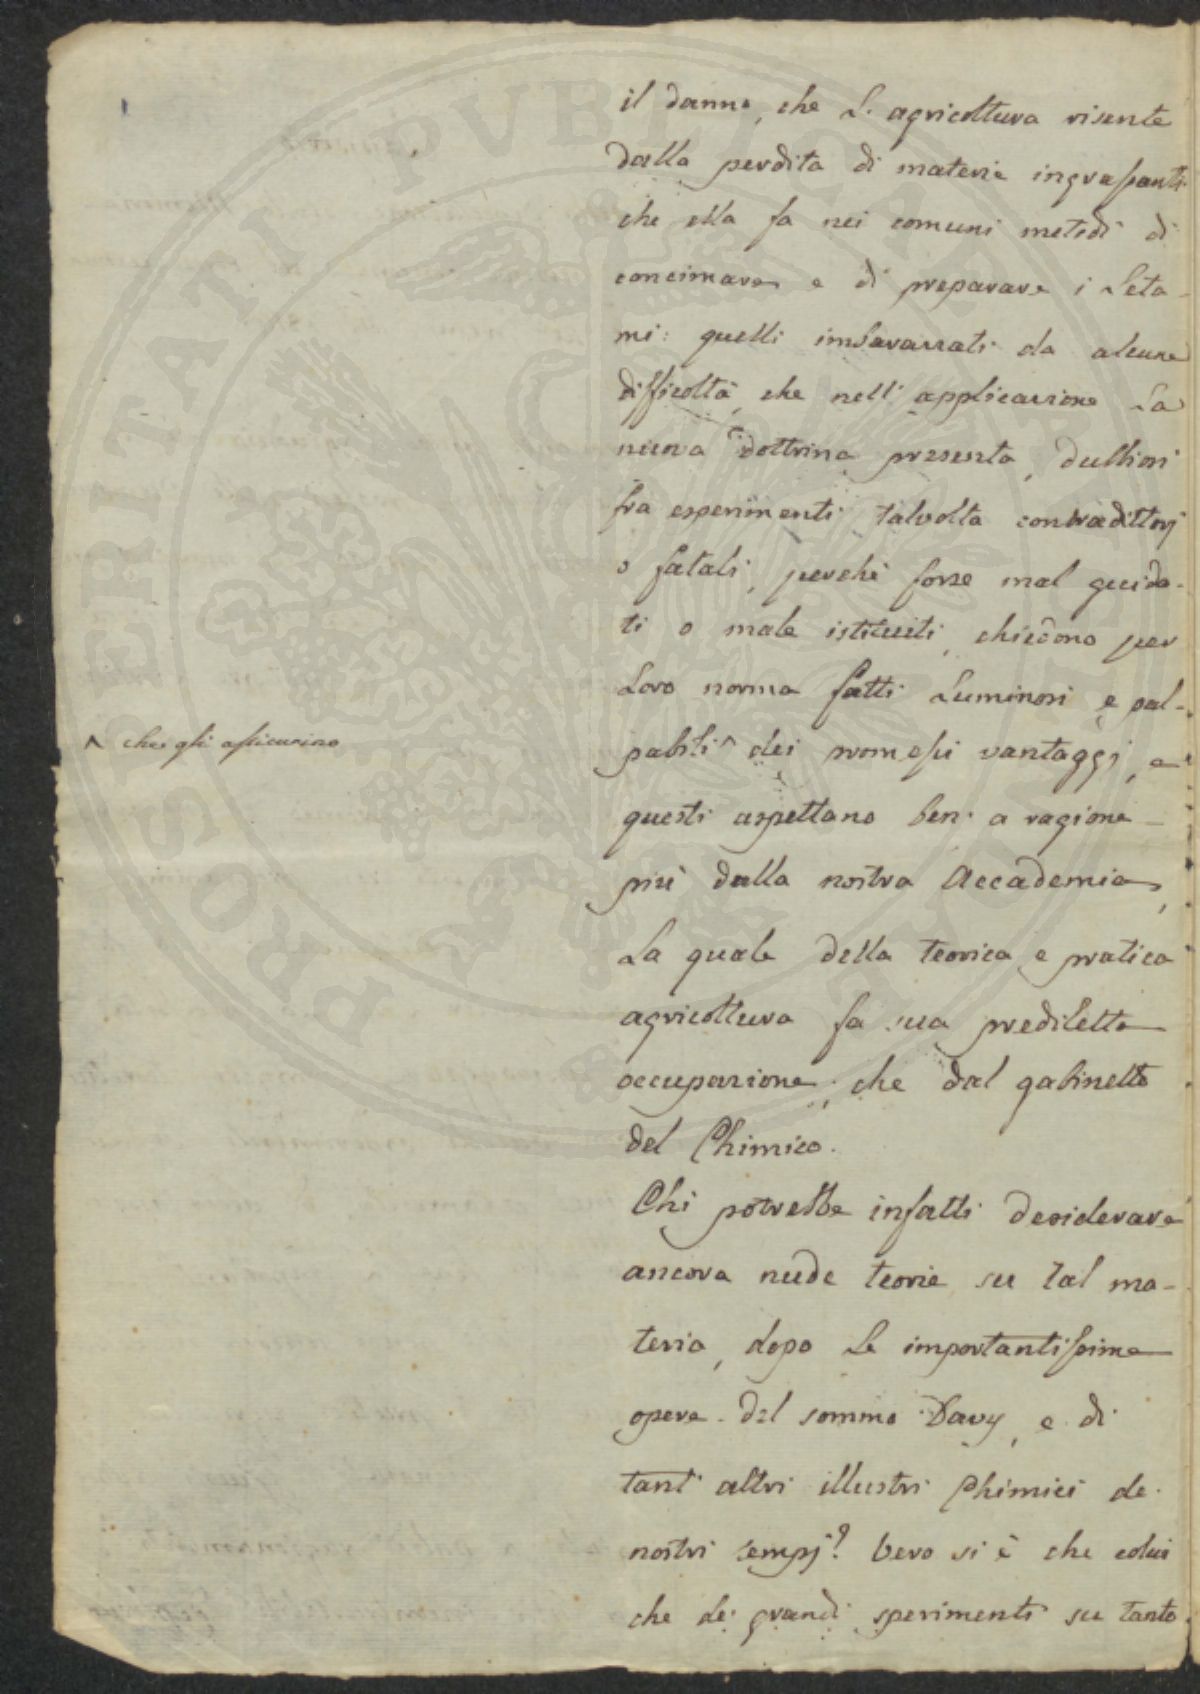 il danno, che l'agricoltura risente
dalla perdita di materie ingrassanti
che ella fa nei comuni metodi di
concimare e di preparare i leta-
mi: quelli imbarazzati da alcune
difficoltà, che nell'applicazione la
nuova dottrina presenta, dubbiosi
fra esperimenti talvolta contradittorj
o fatali, perchè forse mal guida-
ti o male istituiti, chiedono per
loro norma fatti luminosi e pal-
pabili ^ dei promessi vantaggj, e
^ che gli assicurino
questi aspettano ben a ragione
più dalla nostra Accademia,
la quale della teorica e pratica
agricoltura fa sua prediletta
occupazione, che dal gabinetto
del Chimico.
Chi potrebbe infatti desiderare
ancora nude teorie su tal ma-
teria, dopo le importantissime
opere del sommo Davy, e di
tant'altri illustri Chimici de'
nostri tempj? Vero si è che colui
che de' grandi sperimenti su tanto
PROSPERITATI PUBLICAE